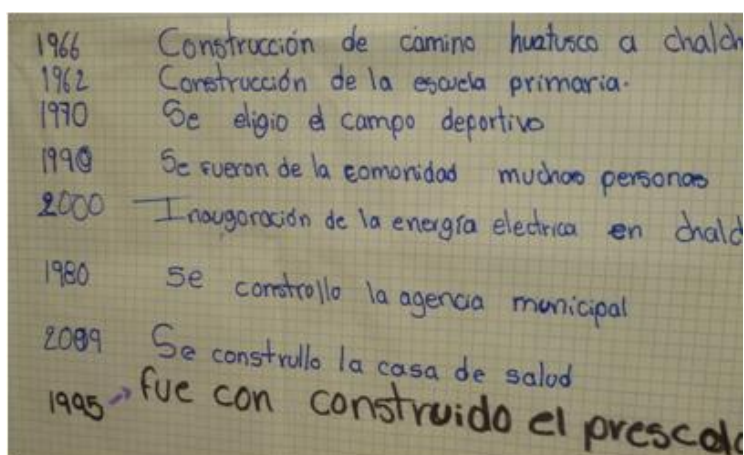 1966 Construcción de camino huatusco a chalch
1962 Construcción de la escuela primaria.
1970 Se eligio el campo deportivo
1990 Se fueron de la comonidad muchas personas
2000 Inaugoración de la energía electrica en chalc
1980 Se constrollo la agencia municipal
2009 Se construllo la casa de salud
1995 → fue con construido el prescola